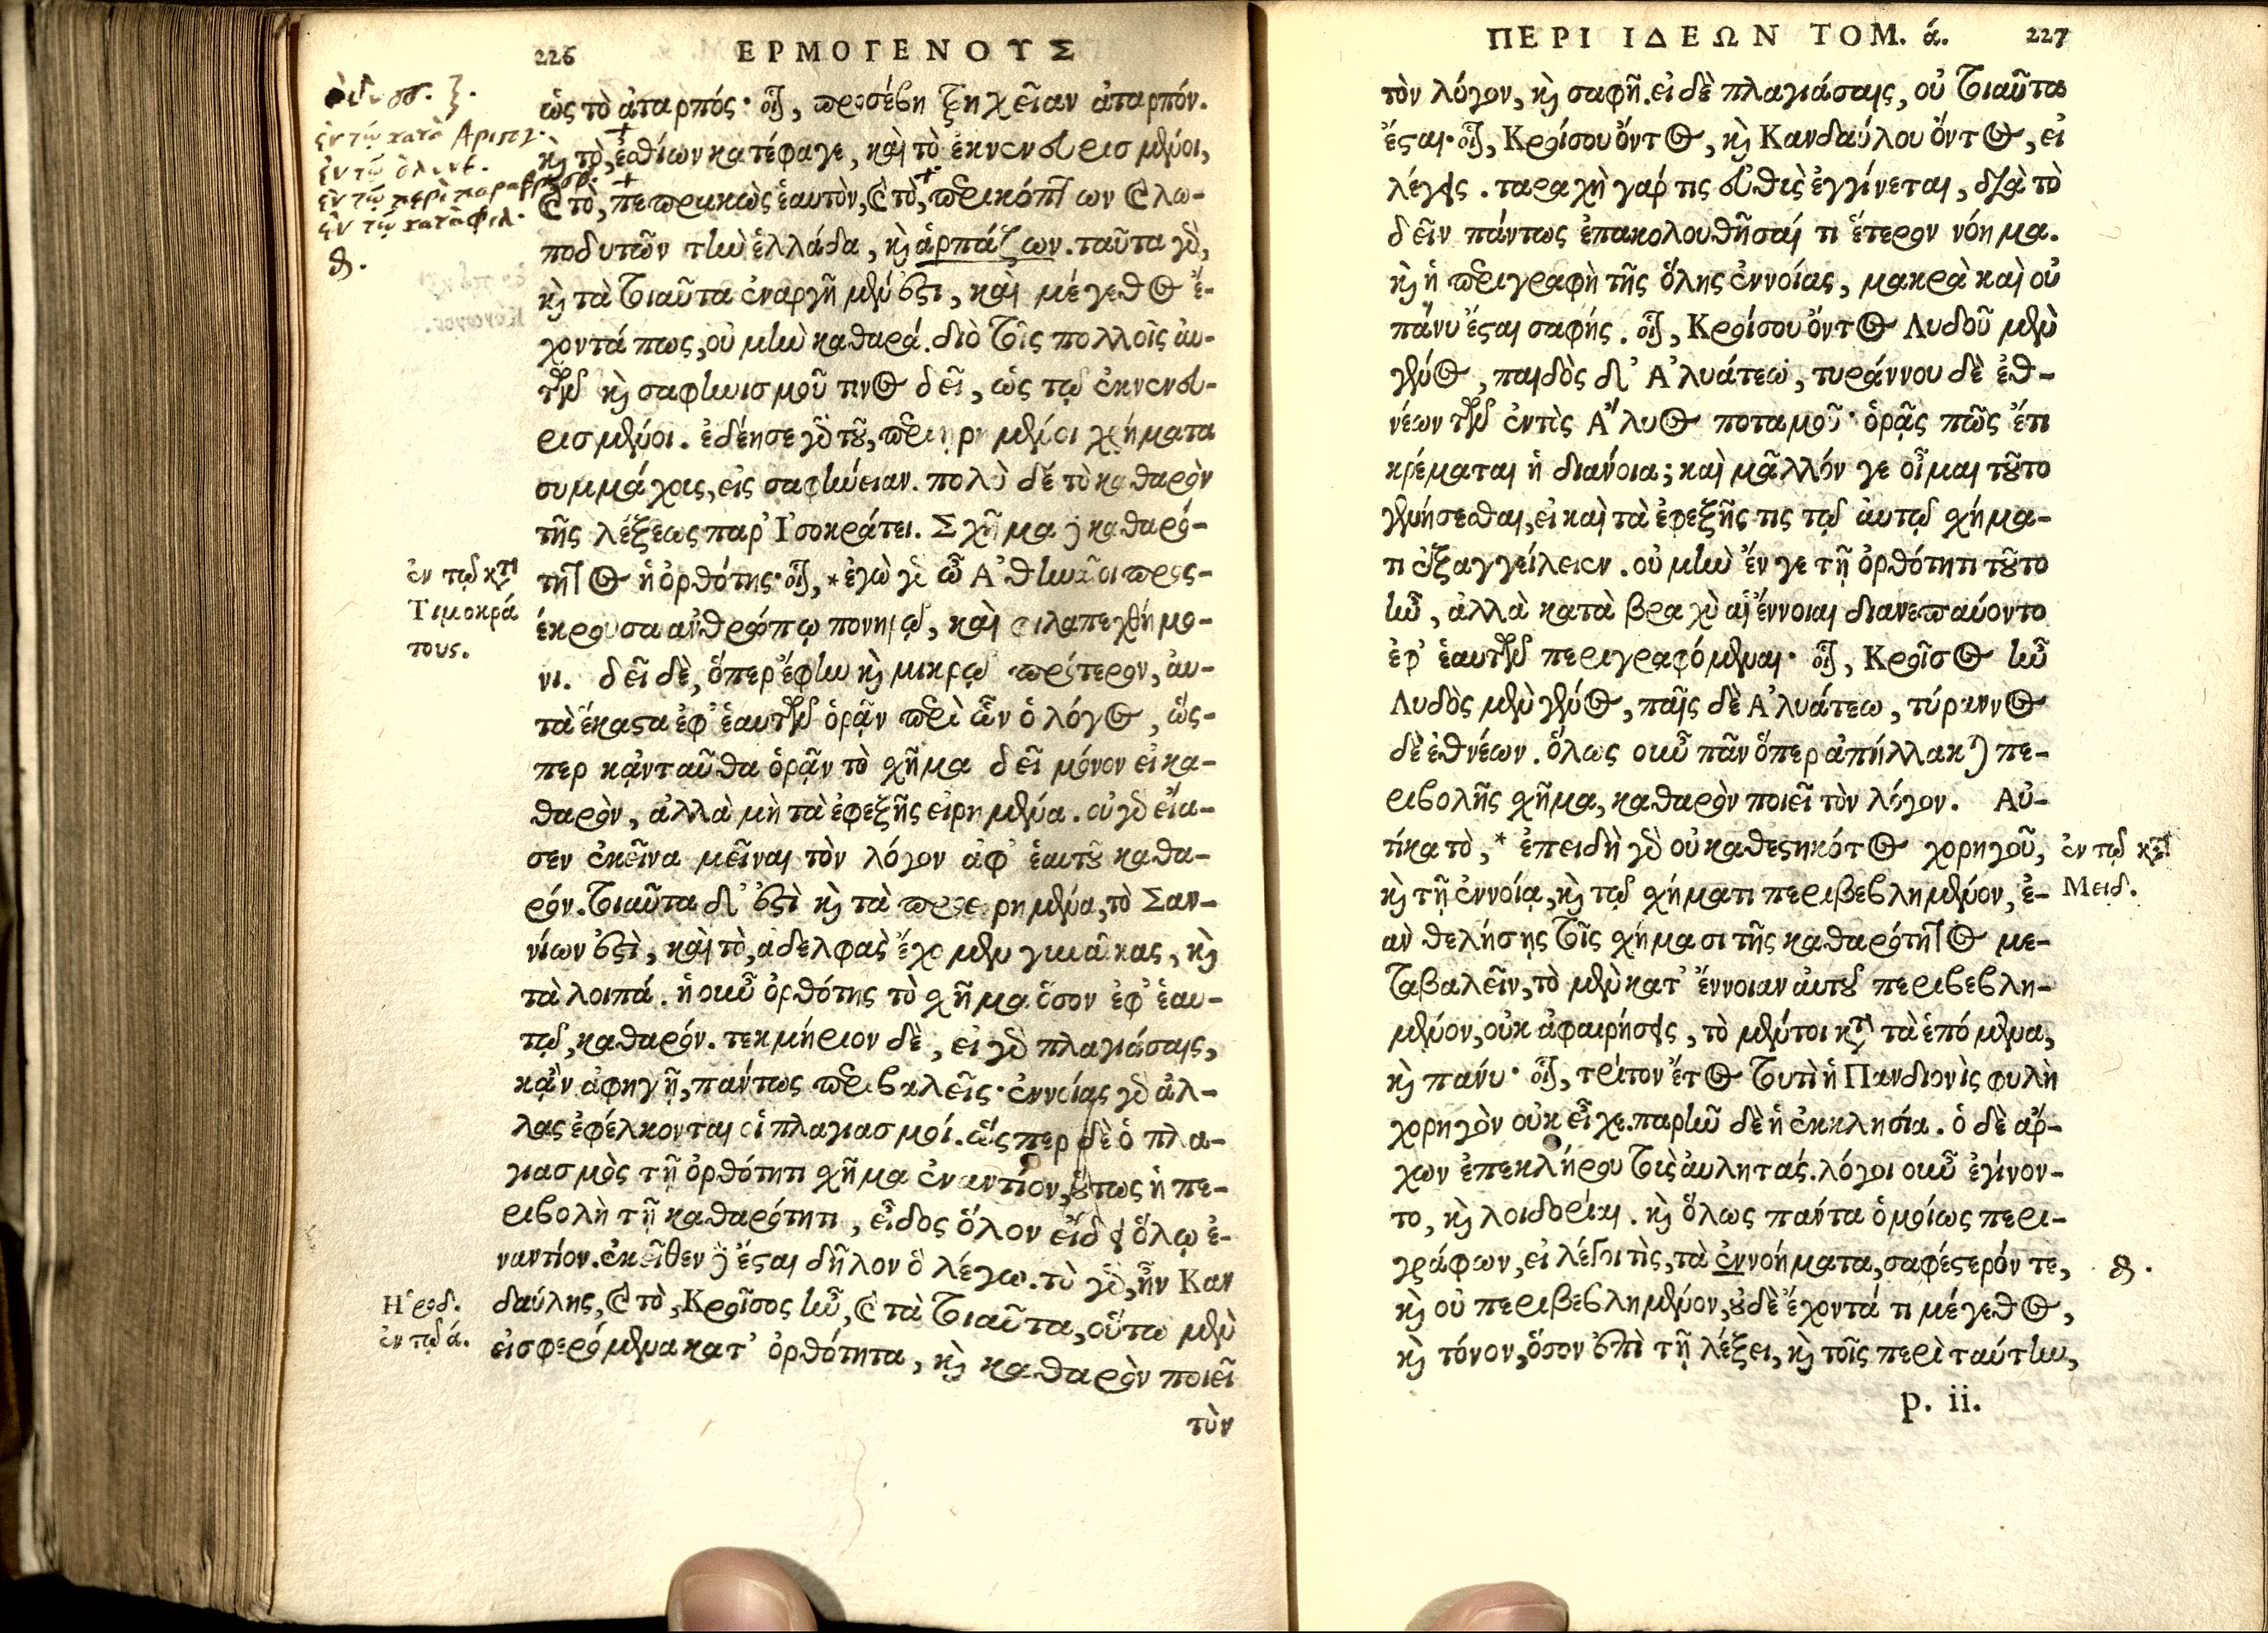 226 ΕΡΜΟΓΕΝΟΥΣ
ὡς τὸ ἀταρπός· οἷον, προσέβη τρηχεῖαν ἀταρπόν.
καὶ τὸ, ἐσθίων κατέφαγε, καὶ τὸ ἐκνενευρισμένοι,
καὶ τὸ, πεπρακὼς ἑαυτὸν, καὶ τὸ, περικόπτων καὶ λω-
ποδυτῶν τὴν ἑλλάδα, καὶ ἁρπάζων. ταῦτα γὰρ,
καὶ τὰ τοιαῦτα ἐναργῆ μέν ἐστι, καὶ μέγεθος ἔ-
χοντά πως, οὐ μὴν καθαρά. διὸ τοῖς πολλοῖς αὐ-
τῶν καὶ σαφηνισμοῦ τινος δεῖ, ὡς τῷ ἐκνενευ-
ρισμένοι. ἐδέησε γὰρ τοῦ, περιῃρημένοι χρήματα
συμμάχους, εἰς σαφήνειαν. πολὺ δὲ τὸ καθαρὸν
τῆς λέξεως παρ' Ἰσοκράτει. Σχῆμα δὲ καθαρό-
τητος ἡ ὀρθότης· οἷον, *ἐγὼ γὰρ ὦ Ἀθηναῖοι προς-
έκρουσα ἀνθρώπῳ πονηρῷ, καὶ φιλαπεχθήμο-
νι. δεῖ δὲ, ὅπερ ἔφην καὶ μικρῷ πρότερον, αὐ-
τὰ ἕκαστα ἐφ' ἑαυτῶν ὁρᾷν περὶ ὧν ὁ λόγος, ὥς-
περ κᾀνταῦθα ὁρᾷν τὸ σχῆμα δεῖ μόνον εἰ κα-
θαρὸν, ἀλλὰ μὴ τὰ ἐφεξῆς εἰρημένα. οὐ γὰρ εἴα-
σεν ἐκεῖνα μεῖναι τὸν λόγον ἀφ' ἑαυτοῦ καθα-
ρόν. τοιαῦτα δ' ἐστὶ καὶ τὰ προειρημένα, τὸ Σαν-
νίων ἐστὶ, καὶ τὸ, ἀδελφὰς ἔχομεν γυναῖκας, καὶ
τὰ λοιπά. ἡ οὖν ὀρθότης τὸ σχῆμα ὅσον ἐφ' ἑαυ-
τῷ, καθαρόν. τεκμήριον δὲ, εἰ γὰρ πλαγιάσαις,
κᾂν ἀφηγῇ, πάντως περιβαλεῖς· ἐννοίας γὰρ ἄλ-
λας ἐφέλκονται οἱ πλαγιασμοί. ὥςπερ δὲ ὁ πλα-
γιασμὸς τῇ ὀρθότητι σχῆμα ἐναντίον, οὕτως ἡ πε-
ριβολὴ τῇ καθαρότητι, εἶδος ὅλον εἴδει ὅλῳ ἐ-
ναντίον. ἐκεῖθεν δὲ ἔσται δῆλον ὃ λέγω. τὸ γὰρ, ἦν Καν
δαύλης, καὶ τὸ, Κροῖσος ἦν, καὶ τὰ τοιαῦτα, οὕτω μὲν
εἰσφερόμενα κατ' ὀρθότητα, καὶ καθαρὸν ποιεῖ
τὸν
ἐν τῷ κατὰ Ἀριστ.
ἐν τῷ κατὰ Φιλ.
ἐν τῷ κατὰ
Τιμοκρά
τους.
Ἡροδ.
ἐν τῷ ά.
ΠΕΡΙ ΙΔΕΩΝ ΤΟΜ. ά. 227
τὸν λόγον, καὶ σαφῆ. εἰ δὲ πλαγιάσαις, οὐ τοιαῦτα
ἔσται· οἷον, Κροίσου ὄντος, καὶ Κανδαύλου ὄντος, εἰ
λέγεις. ταραχὴ γάρ τις εὐθὺς ἐγγίνεται, διὰ τὸ
δεῖν πάντως ἐπακολουθῆσαί τι ἕτερον νόημα.
καὶ ἡ περιγραφὴ τῆς ὅλης ἐννοίας, μακρὰ καὶ οὐ
πάνυ ἔσται σαφής. οἷον, Κροίσου ὄντος Λυδοῦ μὲν
γένος, παιδὸς δ' Ἀλυάτεω, τυράννου δὲ ἐθ-
νέων τῶν ἐντὸς Ἅλυος ποταμοῦ· ὁρᾷς πῶς ἔτι
κρέμαται ἡ διάνοια; καὶ μᾶλλόν γε οἶμαι τοῦτο
γενήσεσθαι, εἰ καὶ τὰ ἐφεξῆς τις τῷ αὐτῷ σχήμα-
τι ἐξαγγείλειεν. οὐ μὴν ἔν γε τῇ ὀρθότητι τοῦτο
ἦν, ἀλλὰ κατὰ βραχὺ αἱ ἔννοιαι διανεπαύοντο
ἐφ' ἑαυτῶν περιγραφόμεναι· οἷον, Κροῖσος ἦν
Λυδὸς μὲν γένος, παῖς δὲ Ἀλυάτεω, τύραννος
δὲ ἐθνέων. ὅλως οὖν πᾶν ὅπερ ἀπήλλακται πε-
ριβολῆς σχῆμα, καθαρὸν ποιεῖ τὸν λόγον. Αὐ-
τίκα τὸ, * ἐπειδὴ γὰρ οὐ καθεστηκότος χορηγοῦ,
καὶ τῇ ἐννοίᾳ, καὶ τῷ σχήματι περιβεβλημένον, ἐ-
ὰν θελήσῃς τοῖς σχήμασι τῆς καθαρότητος με-
ταβαλεῖν, τὸ μὲν κατ' ἔννοιαν αὐτοῦ περιβεβλη-
μένον, οὐκ ἀφαιρήσεις, τὸ μέντοι κατὰ τὰ ἑπόμενα,
καὶ πάνυ· οἷον, τρίτον ἔτος τουτὶ ἡ Πανδιονὶς φυλὴ
χορηγὸν οὐκ εἶχε. παρῆν δὲ ἡ ἐκκλησία. ὁ δὲ ἄρ-
χων ἐπεκλήρου τοὺς αὐλητάς. λόγοι οὖν ἐγίνον-
το, καὶ λοιδορίαι. καὶ ὅλως πάντα ὁμοίως περι-
γράφων, εἰ λέγοι τὶς, τὰ ἐννοήματα, σαφέστερόν τε,
καὶ οὐ περιβεβλημένον, οὐδὲ ἔχοντά τι μέγεθος,
καὶ τόνον, ὅσον ἐπὶ τῇ λέξει, καὶ τοῖς περὶ ταύτην,
p. ii.
ἐν τῷ κατὰ
Μειδ.